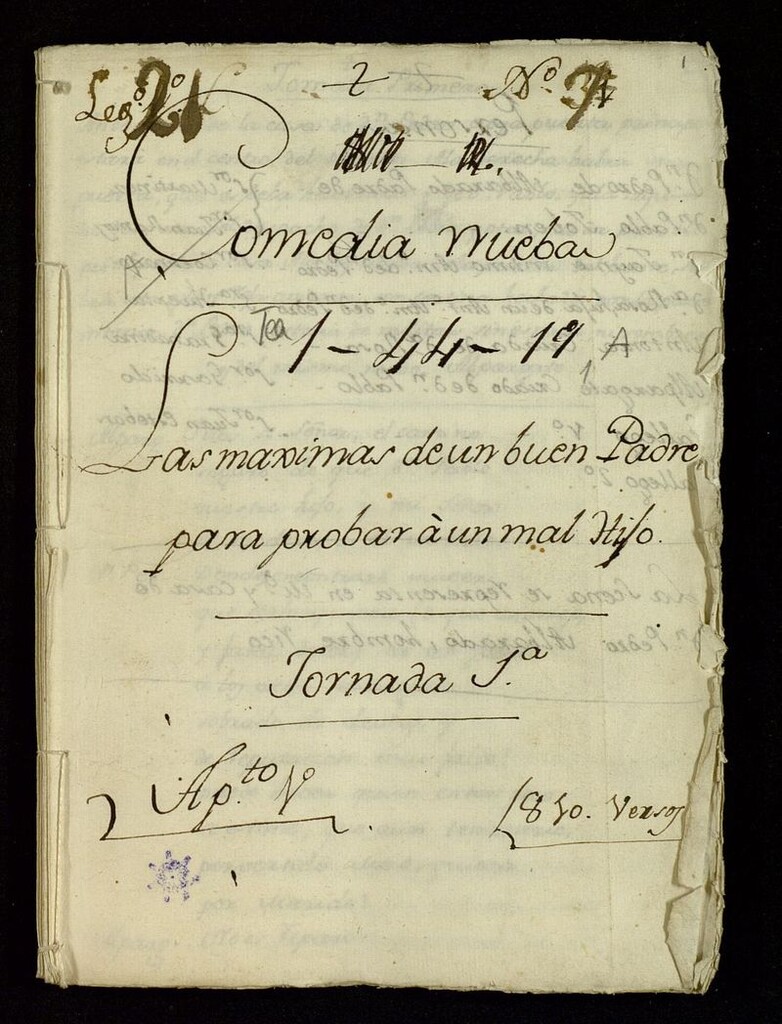 Leg.º 21 2 Nº 1
Comedia nueba
Tea 1-44-19, A
Las maximas de un buen Padre
para probar à un mal Hijo.
Jornada 1.ª
Ap.to Nº
850. Versos